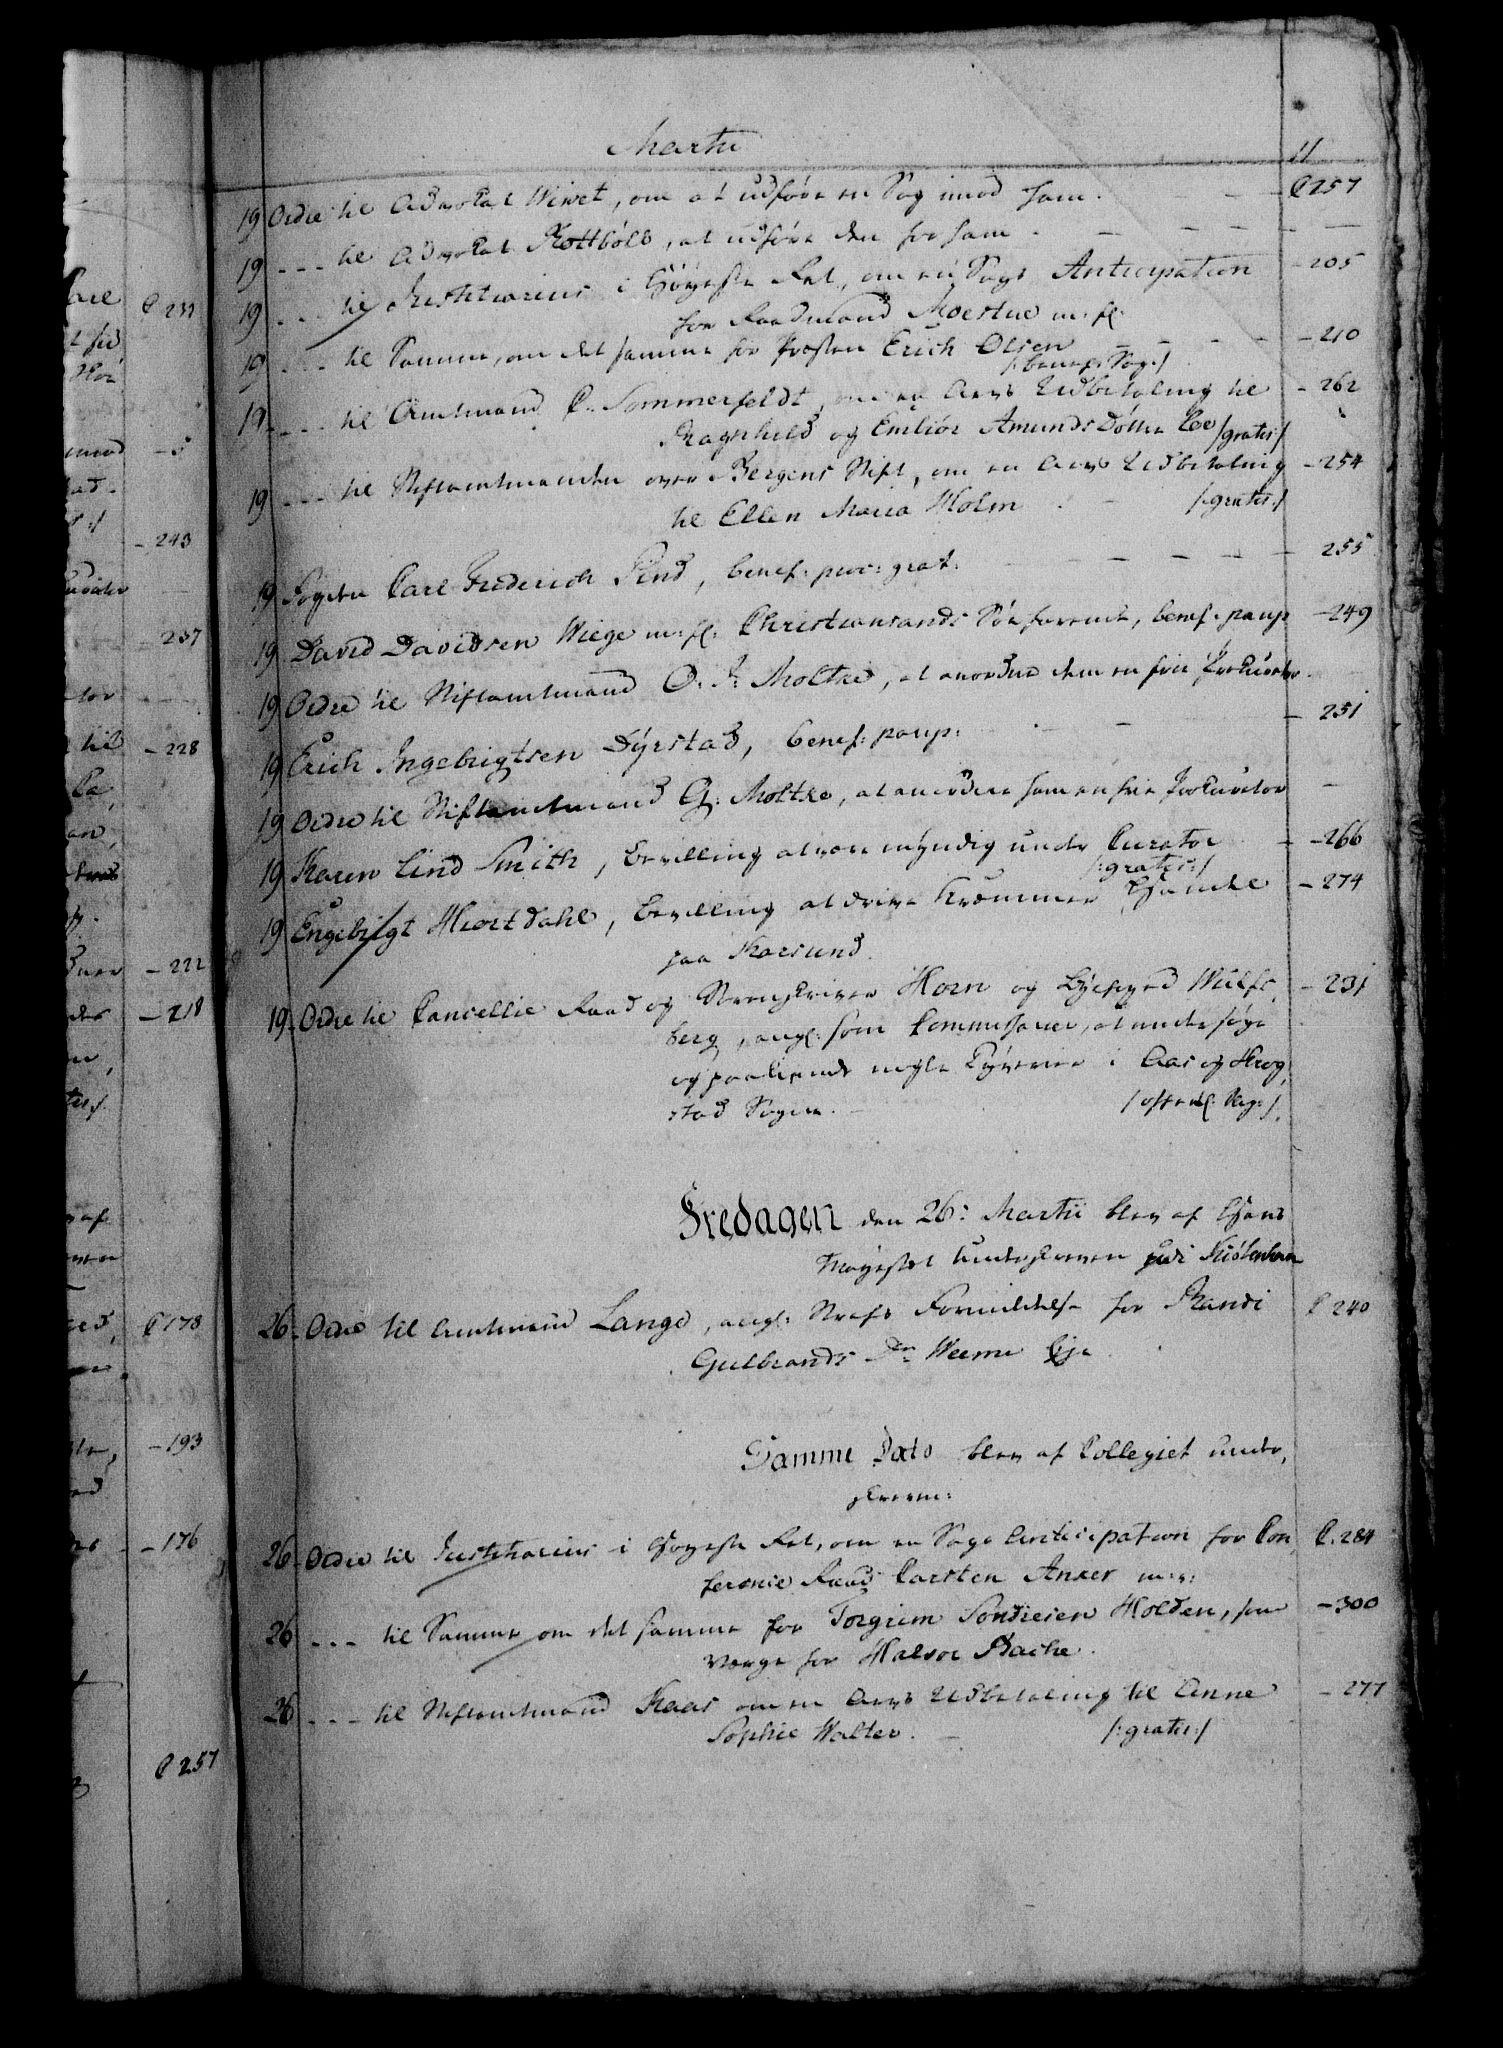 Martii
11
19 Ordre til Advokat Wivet, om at udføre en Sag imod ham. - - C 257
19 - - - til Advokat Rottbøll, at udføre den for ham - - - - - -
19 - - - til Justitiarius i Høyeste Ret, om en Sags Anticipation - 205
for Raadmand Moestue m: fl:
19 - - - til Samme, om det samme for Præsten Erich Olsen - - - - 210
/: benef: Sag :/
19 - - - til Amtmand C. Sommerfeldt, om en Arvs Udbetaling til - 262
Ragnhild og Embiør Amunds Døttre Lee /: gratis :/
19 - - - til Stiftamtmanden over Bergens Stift, om en Arvs Udbetaling - 254
til Ellen Maria Holm - /: gratis :/
19 Fogden Carl Friderich Pind, benef: proc: grat: - - - - 255
19 David Davidsen Wiege m: fl: Christiansands Søefarende, benef: paup - 249
19 Ordre til Stiftamtmand O. J: Moltke, at anordne dem en frie Prokurator
19 Erich Ingebrigtsen Dyrstad, benef: paup: - - - 251
19 Ordre til Stiftamtmand G: Moltke, at anordne ham en frie Prokurator -
19 Karen Lind Smith, Bevilling at være myndig under Curator - - 266
/: gratis :/
19 Engebrigt Hiortdahl, Bevilling at drive Kræmmer Handel - 274
paa Karsund.
19 Ordre til Cancellie Raad og Sorenskriver Horn og Byefoged Wulfs, - 231
berg, angl: som Commissarier, at undersøge
og paakiende nogle Tyverier i Aas og Krog,
stad Sogne. - /: offentl: Sag: /
Fredagen den 26: Martii blev af Hans
Mayestet underskreven her i Kiøbenhavn
26 Ordre til Amtmand Lange, angl: Strafs Formildelse for Randi C 240
Gulbrands Dr: Weeme Eje
Samme Dato blev af Collegiet under,
skreven:
26 Ordre til Justitiarius i Høyeste Ret, om en Sags Anticipation for Con C. 284
ference Raad Carsten Anker m: v:
26 - - - til Samme om det samme for Torgrim Sondresen Holden, som - 300
Værge for Halvor Bache.
26 - - - til Stiftamtmand Kaas om en Arvs Udbetaling til Anne - 277
Sophie Walter. - /: gratis :/
C 233
- 5
- 243
- 237
- 228
- 222
- 218
C 178
- 193
- 176
C 257